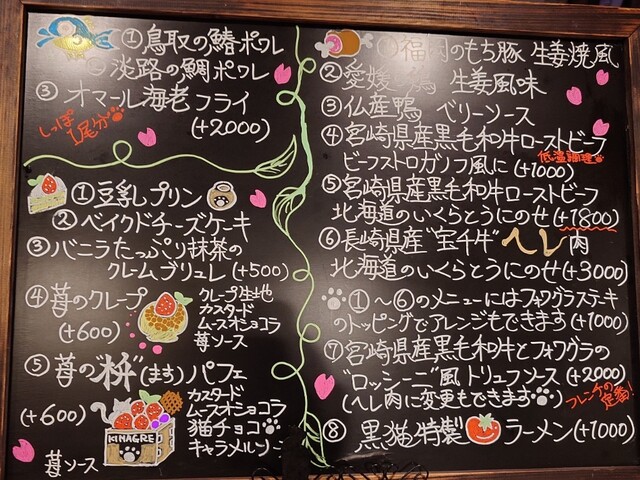 ①鳥取の鰆ポワレ
②淡路の鯛ポワレ
③オマール海老フライ
しっぽ
1尾分
(+2000)
①豆乳プリン
②ベイクドチーズケーキ
③バニラたっぷり抹茶の
クレームブリュレ(+500)
④苺のクレープ
(+600)
クレープ生地
カスタード
ムースオショコラ
苺ソース
⑤苺の"枡"(ます)パフェ
(+600)
カスタード
ムースオショコラ
猫チョコ
キャラメルソー
KINAGRE
苺ソース
①福 のもち豚 生姜焼風
②愛媛 鶏 生姜風味
③仏産鴨 ベリーソース
④宮崎県産黒毛和牛ローストビーフ
低温調理
ビーフストロガノフ風に(+1000)
⑤宮崎県産黒毛和牛ローストビーフ
北海道のいくらとうにのせ(+1800)
⑥長崎県産"宝千牛"ヘレ肉
北海道のいくらとうにのせ(+3000)
①〜⑥のメニューにはフォワグラステーキ
のトッピングでアレンジもできます(+1000)
⑦宮崎県産黒毛和牛とフォワグラの
"ロッシーニ"風トリュフソース(+2000)
(ヘレ肉に変更もできます)
フレンチの
定番!
⑧黒猫特製ラーメン(+1000)